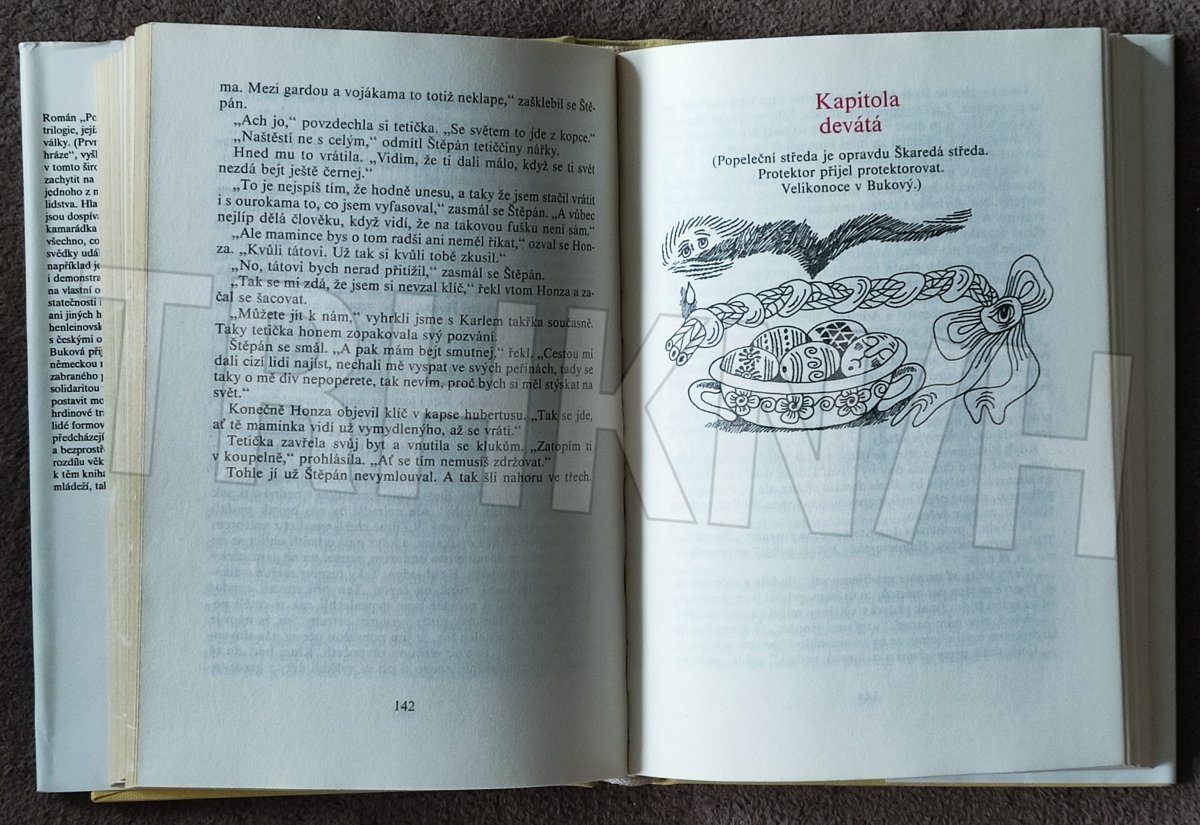 Román „Po
trilogie, její
války. (Prvn
hráze", vyšl
v tomto širo
zachytit na
jednoho z n
lidstva. Hla
jsou dospív
kamarádka
všechno, co
svědky udál
například je
i demonstra
na vlastní o
statečnosti i
ani jiných h
henleinovsk
s českými o
Buková přij
německou n
zabraného p
solidaritou
postavit mo
hrdinové tri
lidé formov
předcházejí
a bezprostře
rozdílu věk
k těm kniha
mládeží, tak
ma. Mezi gardou a vojákama to totiž neklape," zašklebil se Ště-
pán.
„Ach jo," povzdechla si tetička. „Se světem to jde z kopce."
„Naštěstí ne s celým," odmítl Štěpán tetiččiny nářky.
Hned mu to vrátila. „Vidím, že ti dali málo, když se ti svět
nezdá bejt ještě černej."
„To je nejspíš tím, že hodně unesu, a taky že jsem stačil vrátit
i s ourokama to, co jsem vyfasoval," zasmál se Štěpán. „A vůbec
nejlíp dělá člověku, když vidí, že na takovou fušku není sám."
„Ale mamince bys o tom radši ani neměl říkat," ozval se Hon-
za. „Kvůli tátovi. Už tak si kvůli tobě zkusil."
„No, tátovi bych nerad přitížil," zasmál se Štěpán.
„Tak se mi zdá, že jsem si nevzal klíč," řekl vtom Honza a za-
čal se šacovat.
„Můžete jít k nám," vyhrkli jsme s Karlem takřka současně.
Taky tetička honem zopakovala svý pozvání.
Štěpán se smál. „A pak mám bejt smutnej," řekl. „Cestou mi
dali cizí lidi najíst, nechali mě vyspat ve svých peřinách, tady se
taky o mě div nepoperete, tak nevím, proč bych si měl stýskat na
svět."
Konečně Honza objevil klíč v kapse hubertusu. „Tak se jde,
ať tě maminka vidí už vymydlenýho, až se vrátí."
Tetička zavřela svůj byt a vnutila se klukům. „Zatopím ti
v koupelně," prohlásila. „Ať se tím nemusíš zdržovat."
Tohle jí už Štěpán nevymlouval. A tak šli nahoru ve třech.
142
Kapitola
devátá
(Popeleční středa je opravdu Škaredá středa.
Protektor přijel protektorovat.
Velikonoce v Bukový.)
TRHKNIH